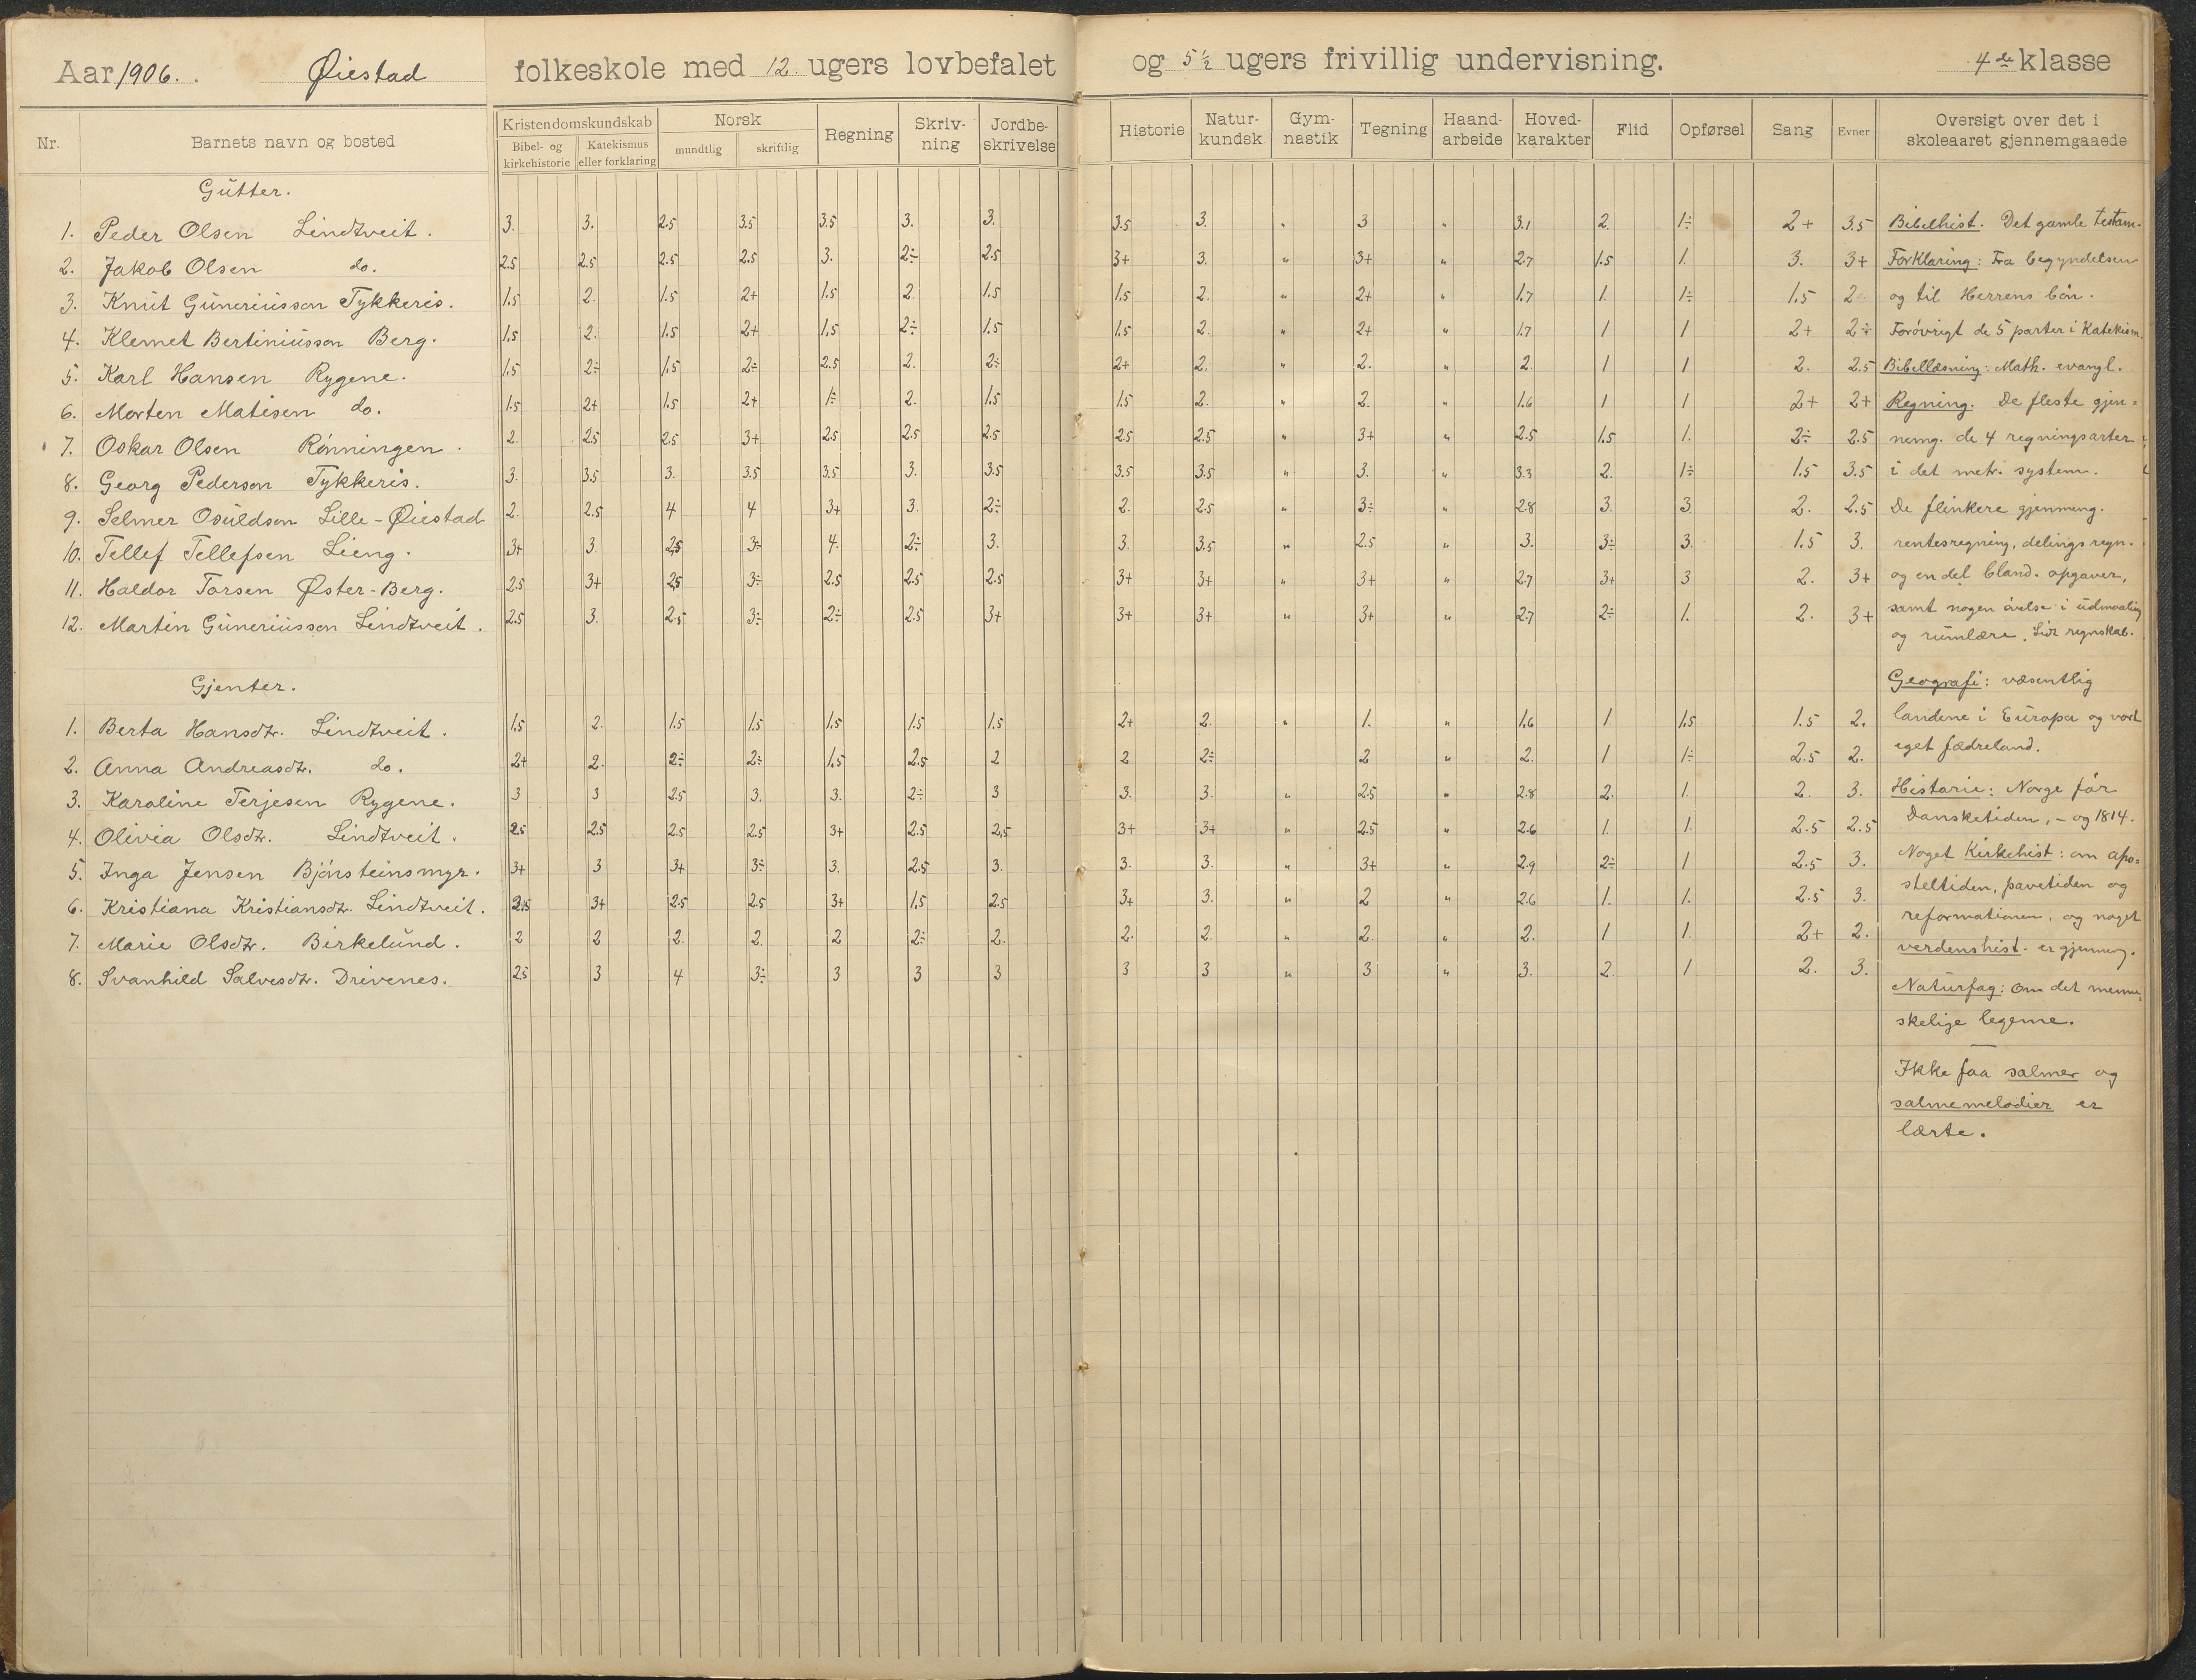 Aar 1906. Øiestad folkeskole med 12. ugers lovbefalet og 5 1/2 ugers frivillig undervisning. 4de klasse
Nr. Barnets navn og bosted Kristendomskundskab Norsk Regning Skriv-ning Jordbe-skrivelse Historie Natur-kundsk Gym-nastik Tegning Haand-arbeide Hoved-karakter Flid Opførsel Sang Evner Oversigt over det i skoleaaret gjennemgaaede
Bibel- og kirkehistorie Katekismus eller forklaring mundtlig skriftlig
Gutter.
1. Peder Olsen Lindtveit. 3. 3. 2.5 3.5 3.5 3. 3. 3.5 3. " 3 " 3.1 2. 1÷ 2+ 3.5
2. Jakob Olsen do. 2.5 2.5 2.5 2.5 3. 2÷ 2.5 3+ 3. " 3+ " 2.7 1.5 1. 3. 3+
3. Knut Guneriusson Tykkeris. 1.5 2. 1.5 2+ 1.5 2. 1.5 1.5 2. " 2+ " 1.7 1. 1÷ 1.5 2
4. Klemet Bertiniusson Berg. 1.5 2. 1.5 2+ 1.5 2÷ 1.5 1.5 2. " 2+ " 1.7 1 1 2+ 2÷
5. Karl Hansen Rygene. 1.5 2÷ 1.5 2÷ 2.5 2. 2÷ 2+ 2. " 2. " 2. 1 1 2. 2.5
6. Morten Matisen do. 1.5 2+ 1.5 2+ 1÷ 2. 1.5 1.5 2. " 2. " 1.6 1 1 2+ 2+
7. Oskar Olsen Rönningen. 2. 2.5 2.5 3+ 2.5 2.5 2.5 2.5 2.5 " 3+ " 2.5 1.5 1. 2÷ 2.5
8. Georg Pederson Tykkeris. 3. 3.5 3. 3.5 3.5 3. 3.5 3.5 3.5 " 3. " 3.3 2. 1÷ 1.5 3.5
9. Selmer Osuldson Lille-Øiestad 2. 2.5 4 4 3+ 3. 2÷ 2. 2.5 " 3÷ " 2.8 3. 3. 2. 2.5
10. Tellef Tellefsen Lieng. 3+ 3. 2.5 3÷ 4. 2÷ 3. 3. 3.5 " 2.5 " 3. 3÷ 3. 1.5 3.
11. Haldor Torsen Øster-Berg. 2.5 3+ 2.5 3÷ 2.5 2.5 2.5 3+ 3+ " 3+ " 2.7 3+ 3 2. 3+
12. Martin Guneriusson Lindtveit. 2.5 3. 2.5 3÷ 2÷ 2.5 3+ 3+ 3+ " 3+ " 2.7 2÷ 1. 2. 3+
Gjenter.
1. Berta Hansdtr. Lindtveit. 1.5 2. 1.5 1.5 1.5 1.5 1.5 2+ 2. " 1. " 1.6 1. 1.5 1.5 2.
2. Anna Andreasdtr. do. 2+ 2. 2÷ 2÷ 1.5 2.5 2 2 2÷ 2 " 2. 1 1÷ 2.5 2.
3. Karoline Terjesen Rygene. 3 3 2.5 3. 3. 2÷ 3 3. 3. " 2.5 " 2.8 2. 1. 2. 3.
4. Olivia Olsdtr. Lindtveit. 2.5 2.5 2.5 2.5 3+ 2.5 2,5 3+ 3+ " 2.5 " 2.6 1. 1. 2.5 2.5
5. Inga Jensen Bjönsteinsmyr. 3+ 3 3+ 3÷ 3. 2.5 3. 3. 3. " 3+ " 2.9 2÷ 1 2.5 3.
6. Kristiana Kristiansdtr. Lindtveit. 2.5 3+ 2.5 2.5 3+ 1.5 2.5 3+ 3. " 2 " 2.6 1. 1. 2.5 3.
7. Marie Olsdtr. Birkelund. 2 2 2. 2. 2 2÷ 2. 2. 2. " 2. " 2. 1 1. 2+ 2.
8. Svanhild Salvesdtr. Drivenes. 2.5 3 4 3÷ 3 3 3 3 3 " 3 " 3. 2. 1 2. 3.
Bibelhist. Det gamle testam.
Forklaring: Fra begyndelsen
og til Herrens bön.
Forövrigt de 5 parter i Katekism.
Bibellæsning: Math. evangl.
Regning. De fleste gjen=
nemg. de 4 regningsarter
i det metr. system.
De flinkere gjennemg.
rentesregning, delingsregn.
og en del bland. opgaver,
samt nogen övelse i udmaaling
og rumlære. Lidt regnskab.
Geografi: væsentlig
landene i Europa og vort
eget fædreland.
Historie: Norge för
Dansketiden, - og 1814.
Noget Kirkehist: om apo=
steltiden, pavetiden og
reformationen, og noget
verdenshist. er gjennemg.
Naturfag: Om det menne=
skelige legeme.
Ikke faa salmer og
salmemelodier er
lærte.